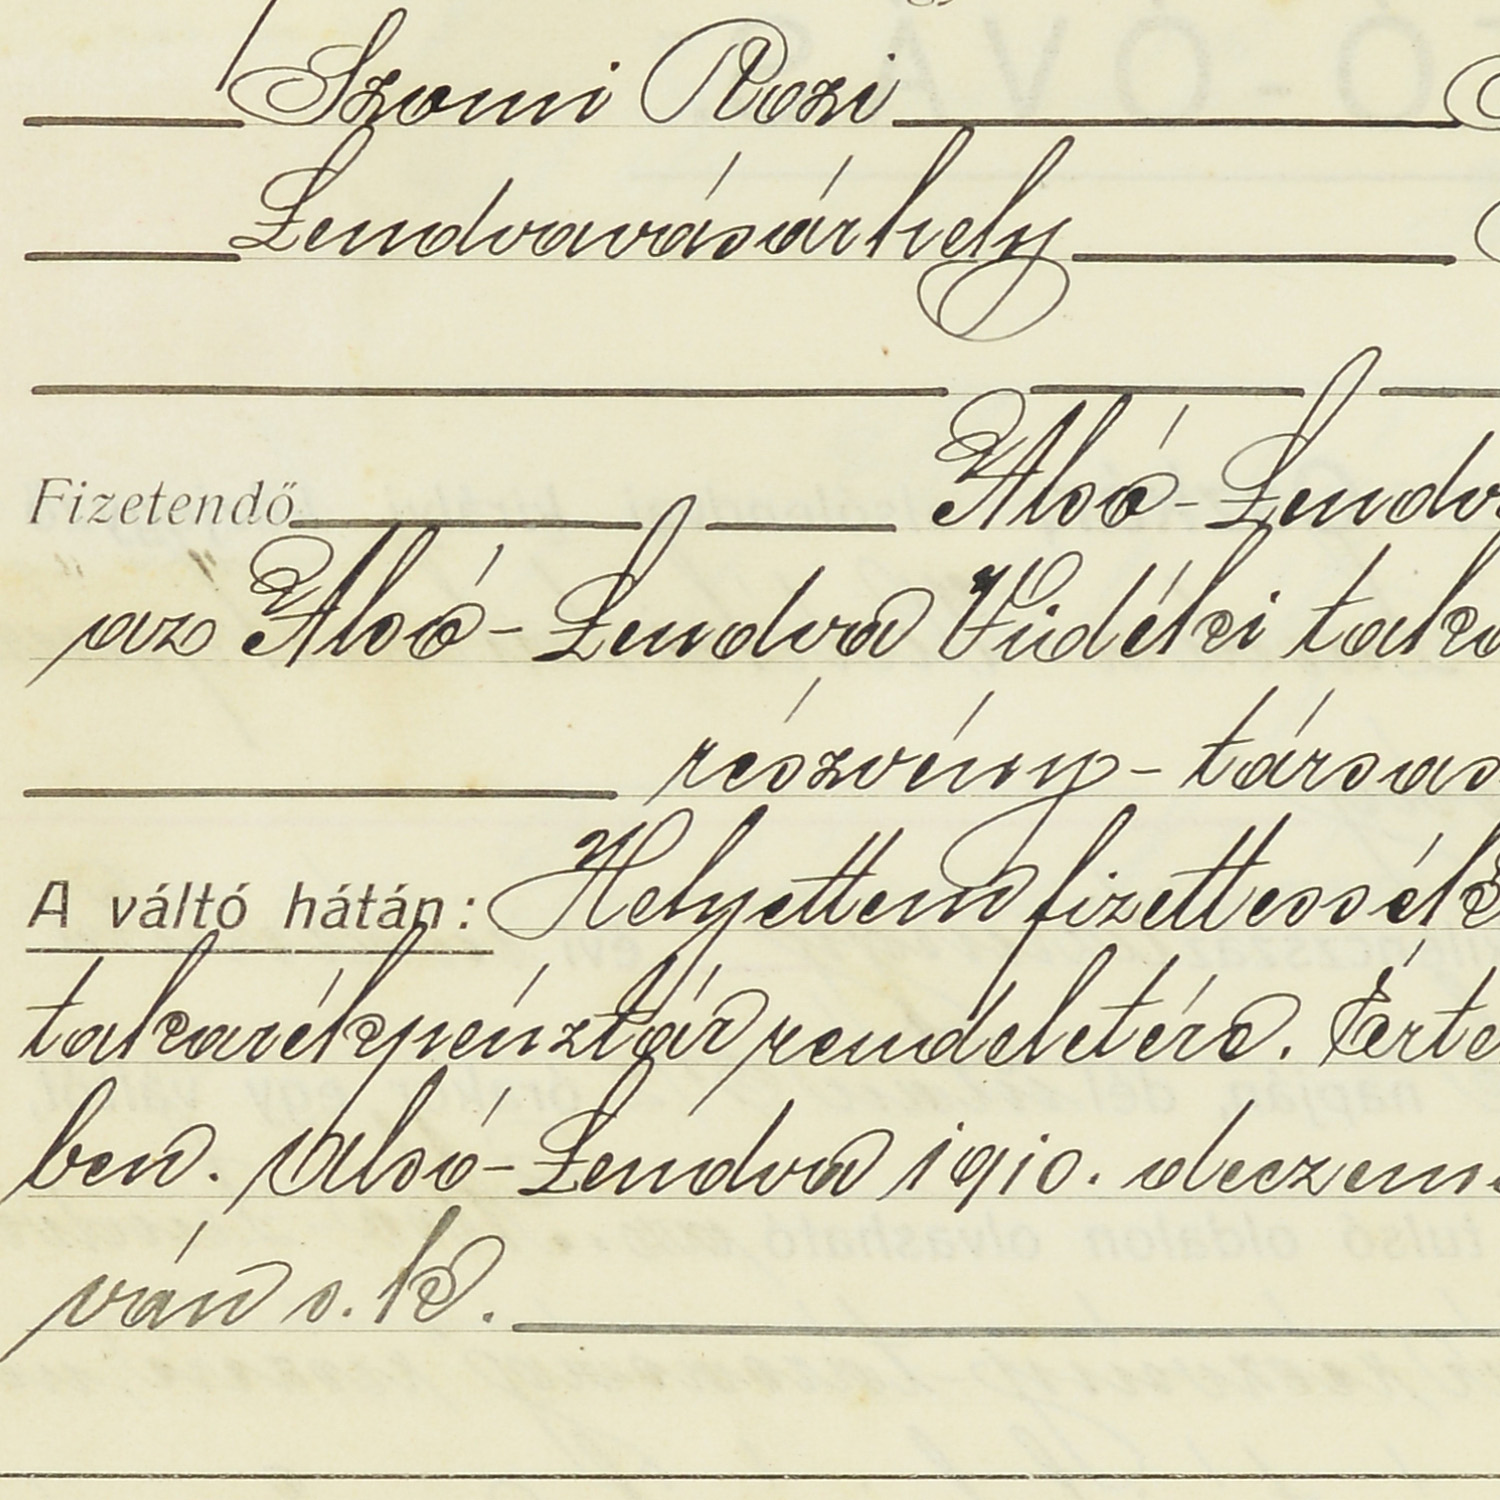 Szomi Rozi
Lendvavásárhely
Fizetendő Alsó-Lendva
az Alsó-Lendva Vidéki taka
részvény-társas
A váltó hátán: Helyettem fizettessék
takarékpénztár rendeletére. Érte
ben. Alsó-Lendva 1910. deczem
ván s. k.